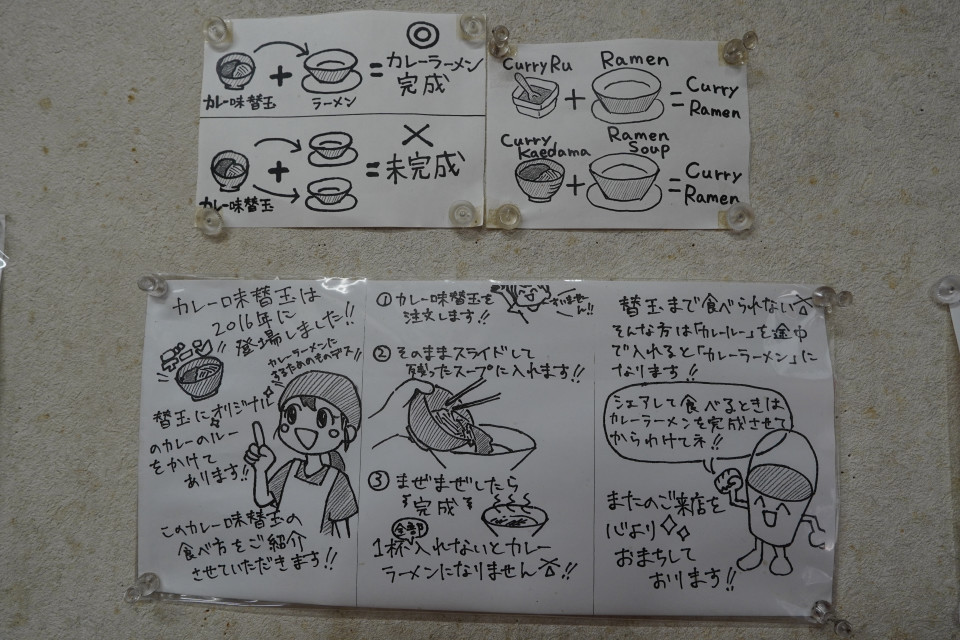 ◎
カレー味替玉
+
ラーメン
=
カレーラーメン
完成
カレー味替玉
+
=
×
未完成
Curry Ru
+
Ramen
=
Curry
Ramen
Curry
Kaedama
+
Ramen
Soup
=
Curry
Ramen
カレー味替玉は
2016年に
登場しました!!
デーン
カレーラーメンに
するためのものデス!!
替玉にオリジナル
のカレーのルー
をかけて
あります!!
このカレー味替玉の
食べ方をご紹介
させていただきます!!
①カレー味替玉を
注文します!!
すいませーん!!
②そのままスライドして
残ったスープに入れます!!
③まぜまぜしたら
完成
全部
1杯入れないとカレー
ラーメンになりません!!
替玉まで食べられない
そんな方は「カレールー」を途中
で入れると「カレーラーメン」に
なります!!
シェアして食べるときは
カレーラーメンを完成させて
からわけてネ!!
またのご来店を
心より
おまちして
おります!!